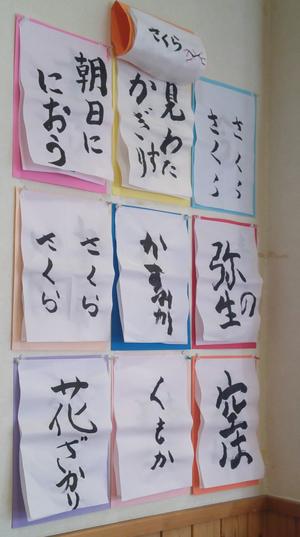 さくら
さくら
さくら
弥生の
空は
見わた
かぎり
かすみか
くもか
朝日に
におう
さくら
さくら
花ざかり